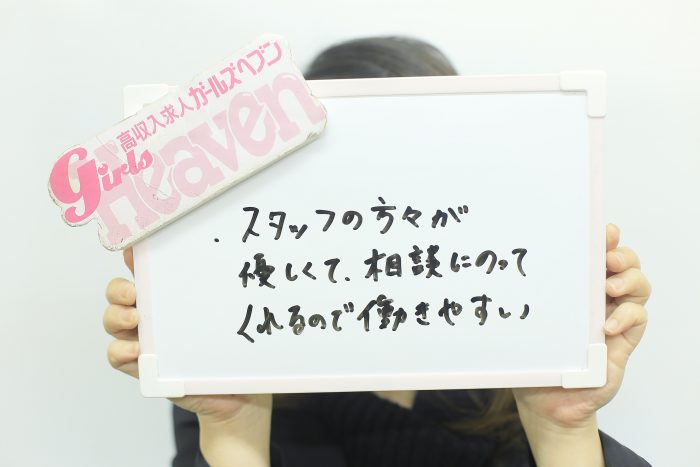 高収入求人ガールズヘブン
Girls Heaven
・スタッフの方々が
優しくて、相談にのって
くれるので働きやすい